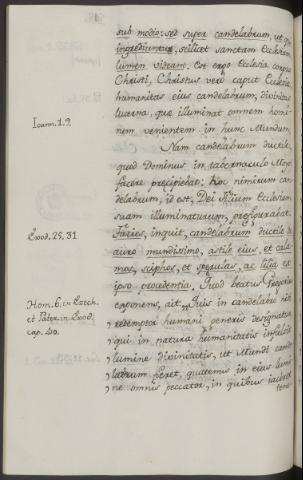 sub modio: sed super candelabrum, ut qui
ingrediuntur, scilicet sanctam Ecclesiam
lumen videant. Est ergo Ecclesia corpus
Christi, Christus verò caput Ecclesiæ
humanitas eius candelabrum, divinitas
lucerna, quæ illuminat omnem homi-
Ioann. 1. 9.
nem venientem in hunc Mundum.
Nam candelabrum ductile,
quod Dominus in tabernaculo Moysi
facere præcipiebat; hoc nimirum can-
delabrum, id est, Dei Filium Ecclesiam
suam illuminaturum, præfigurabat.
Exod. 25. 31.
Facies, inquit, candelabrum ductile de
auro mundissimo, astile eius, et cala-
mos, scyphos, et sperulas, ac lilia ex
ipso procedentia. Quod beatus Gregorius
Hom. 6. in Ezech.
et Pater. in Exod.
cap. 40.
exponens, ait. Quis in candelabro nisi
redemptor humani generis designatur
qui in natura humanitatis infulsit
lumine divinitatis, ut Mundi cande-
labrum fieret, quatenus in eius lumi-
ne omnis peccator, in quibus iaceret
tene-